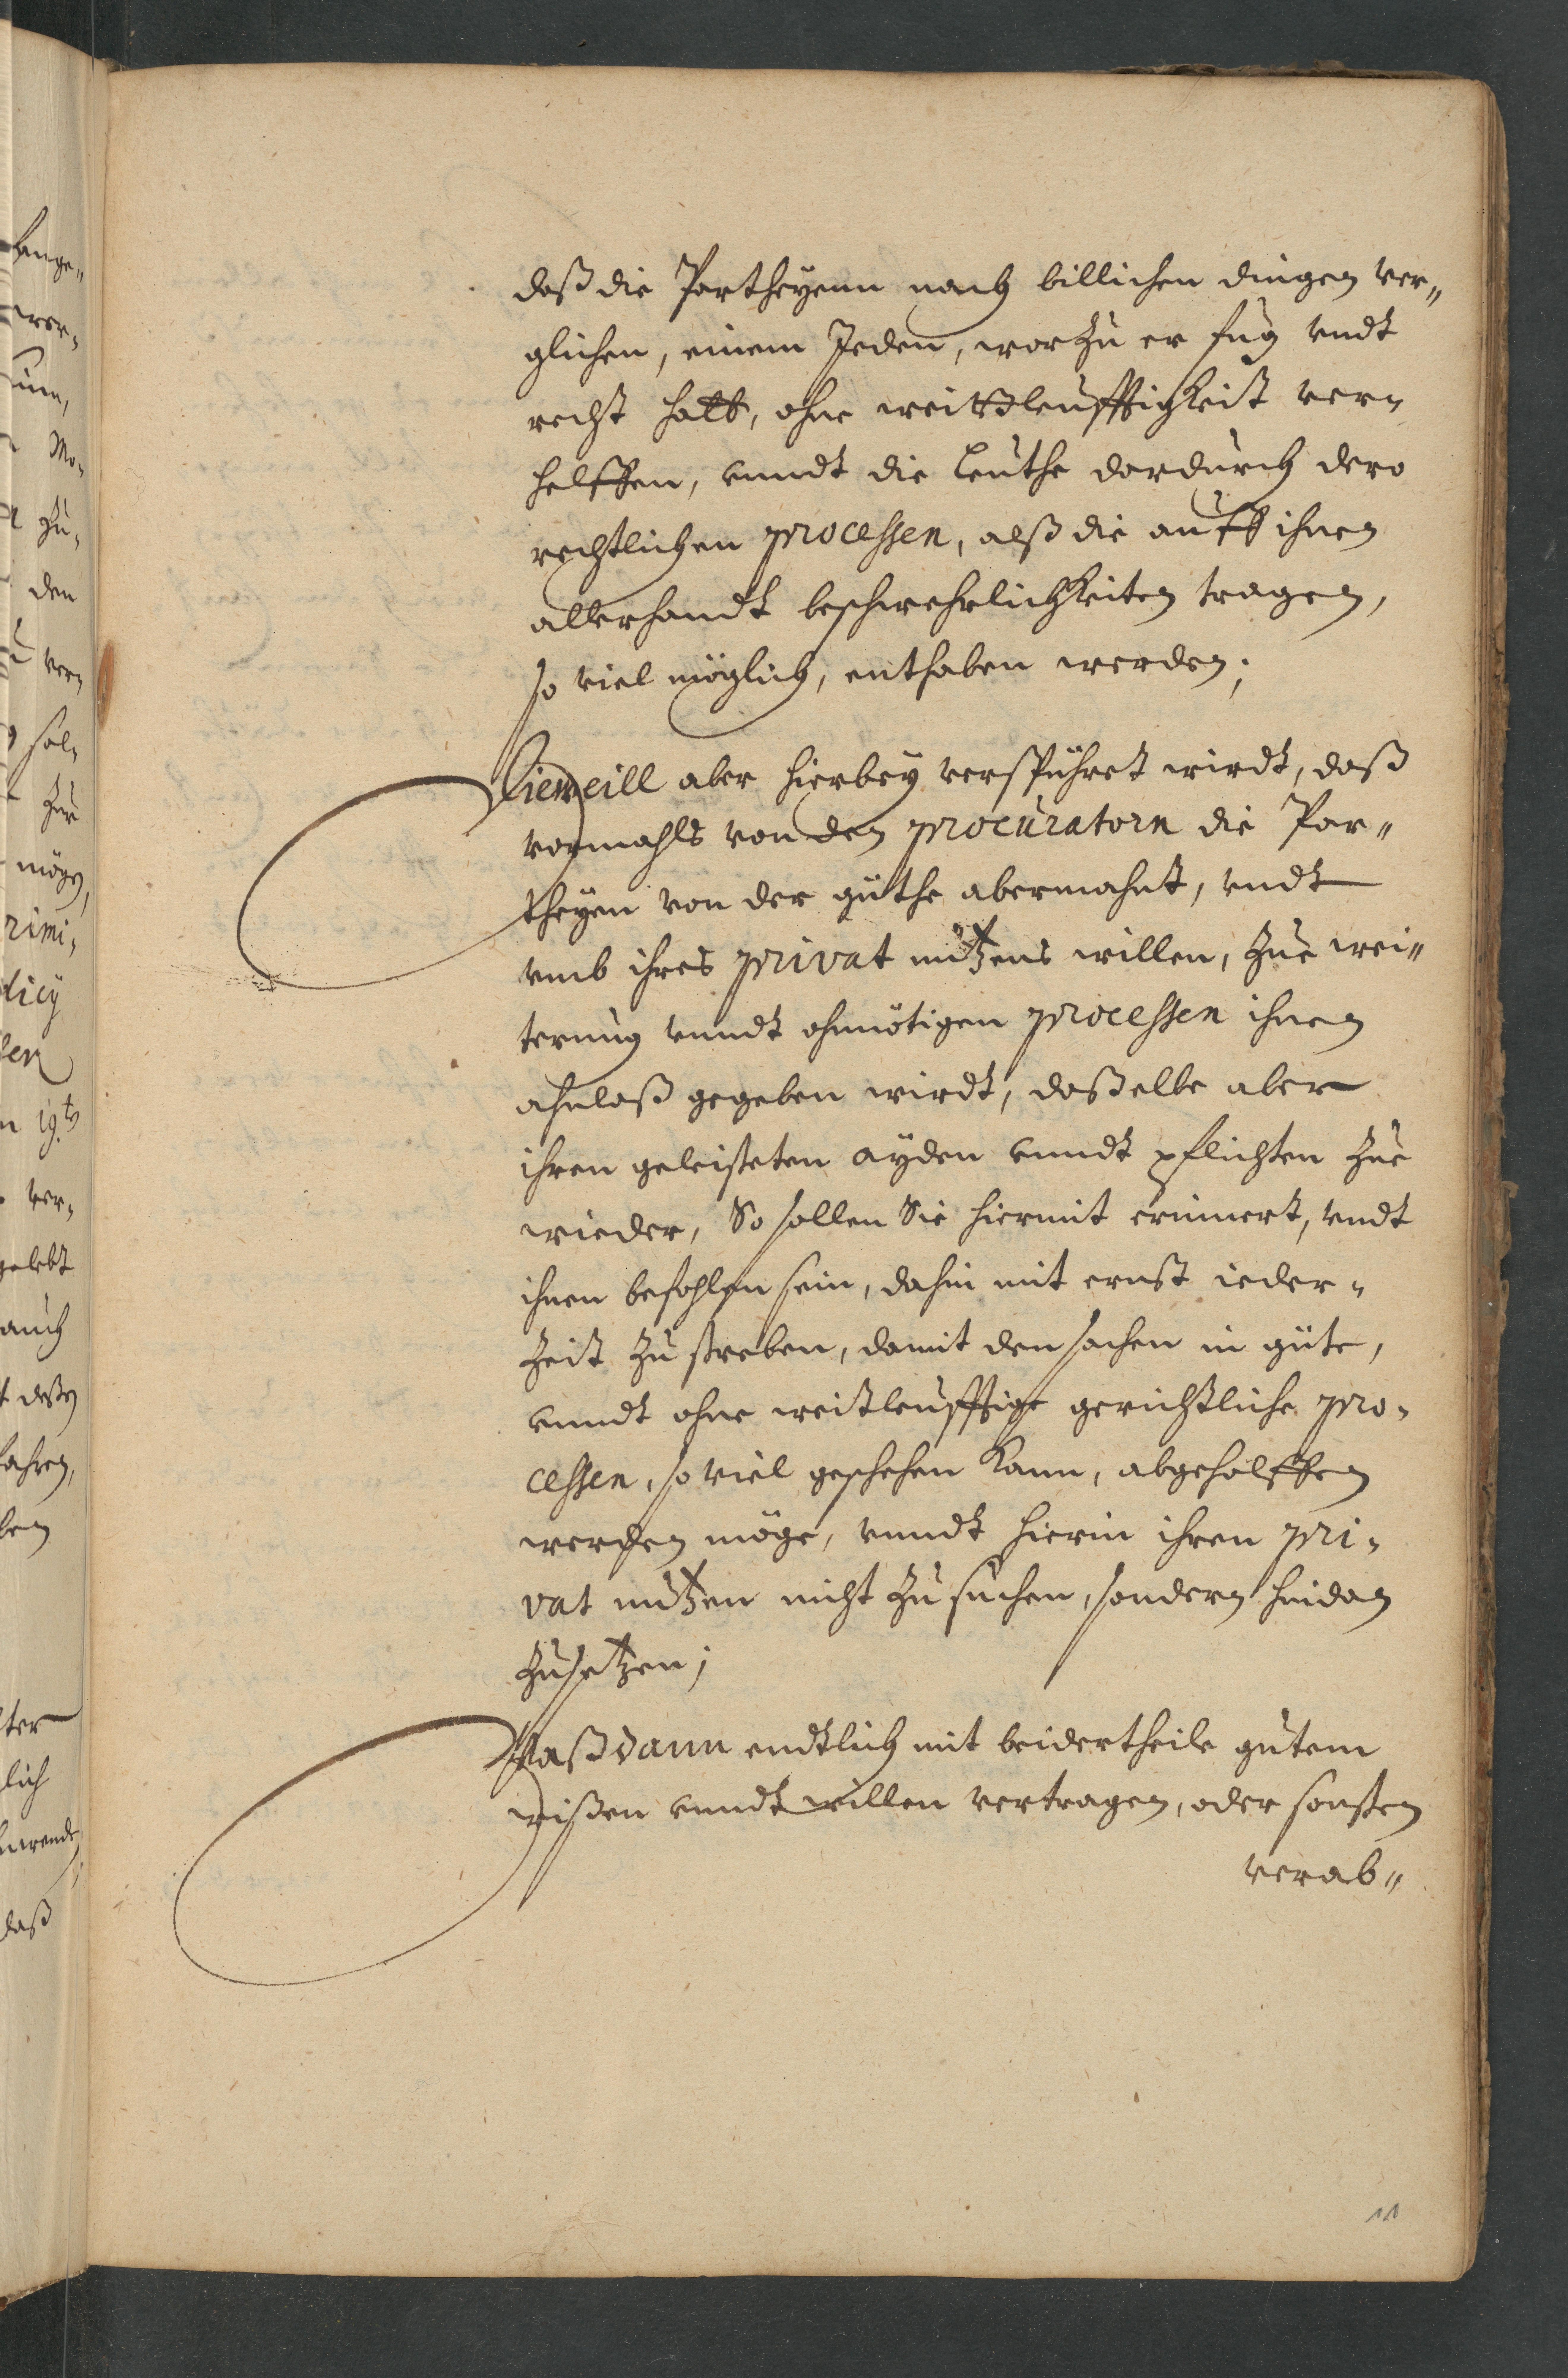 daß die Partheyenn nach billichen dingen ver„
glichen, einem Jeden, worzu er fug vndt
recht hatt, ohne weittleufftigkeit ver-
helffen, vnndt die Leuthe dardurch dero
rechtlichen processen, alß die auff ihnen
allerhandt beschwehrlichkeiten tragen,
so viel möglich, enthaben werden;
Dieweill aber hierbey verspühret wirdt, daß
vormahls von den procuratorn die Par„
theyen von der güthe abermahnt, vndt
vmb ihres privat nutzens willen, zue wei„
terung vnndt ohnnötigen processen ihnen
ahnlaß gegeben wirdt, daßelbe aber
ihren geleisteten ayden vnndt pflichten zue
wieder, So sollen Sie hiermit erinnert, vndt
ihnen befohlen sein, dahin mit ernst ieder-
zeit zu streben, damit den sachen in güte,
vnndt ohne weitleufftige gerichtliche pro-
cessen, so viel geschehen kann, abgeholffen
werden möge, vnndt hierin ihren pri-
vat nutzen nicht zu suchen, sondern hindan
zusetzen;
Waß dann endtlich mit beidertheile gutem
wißen vnndt willen vertragen, oder sonsten
verab„
11